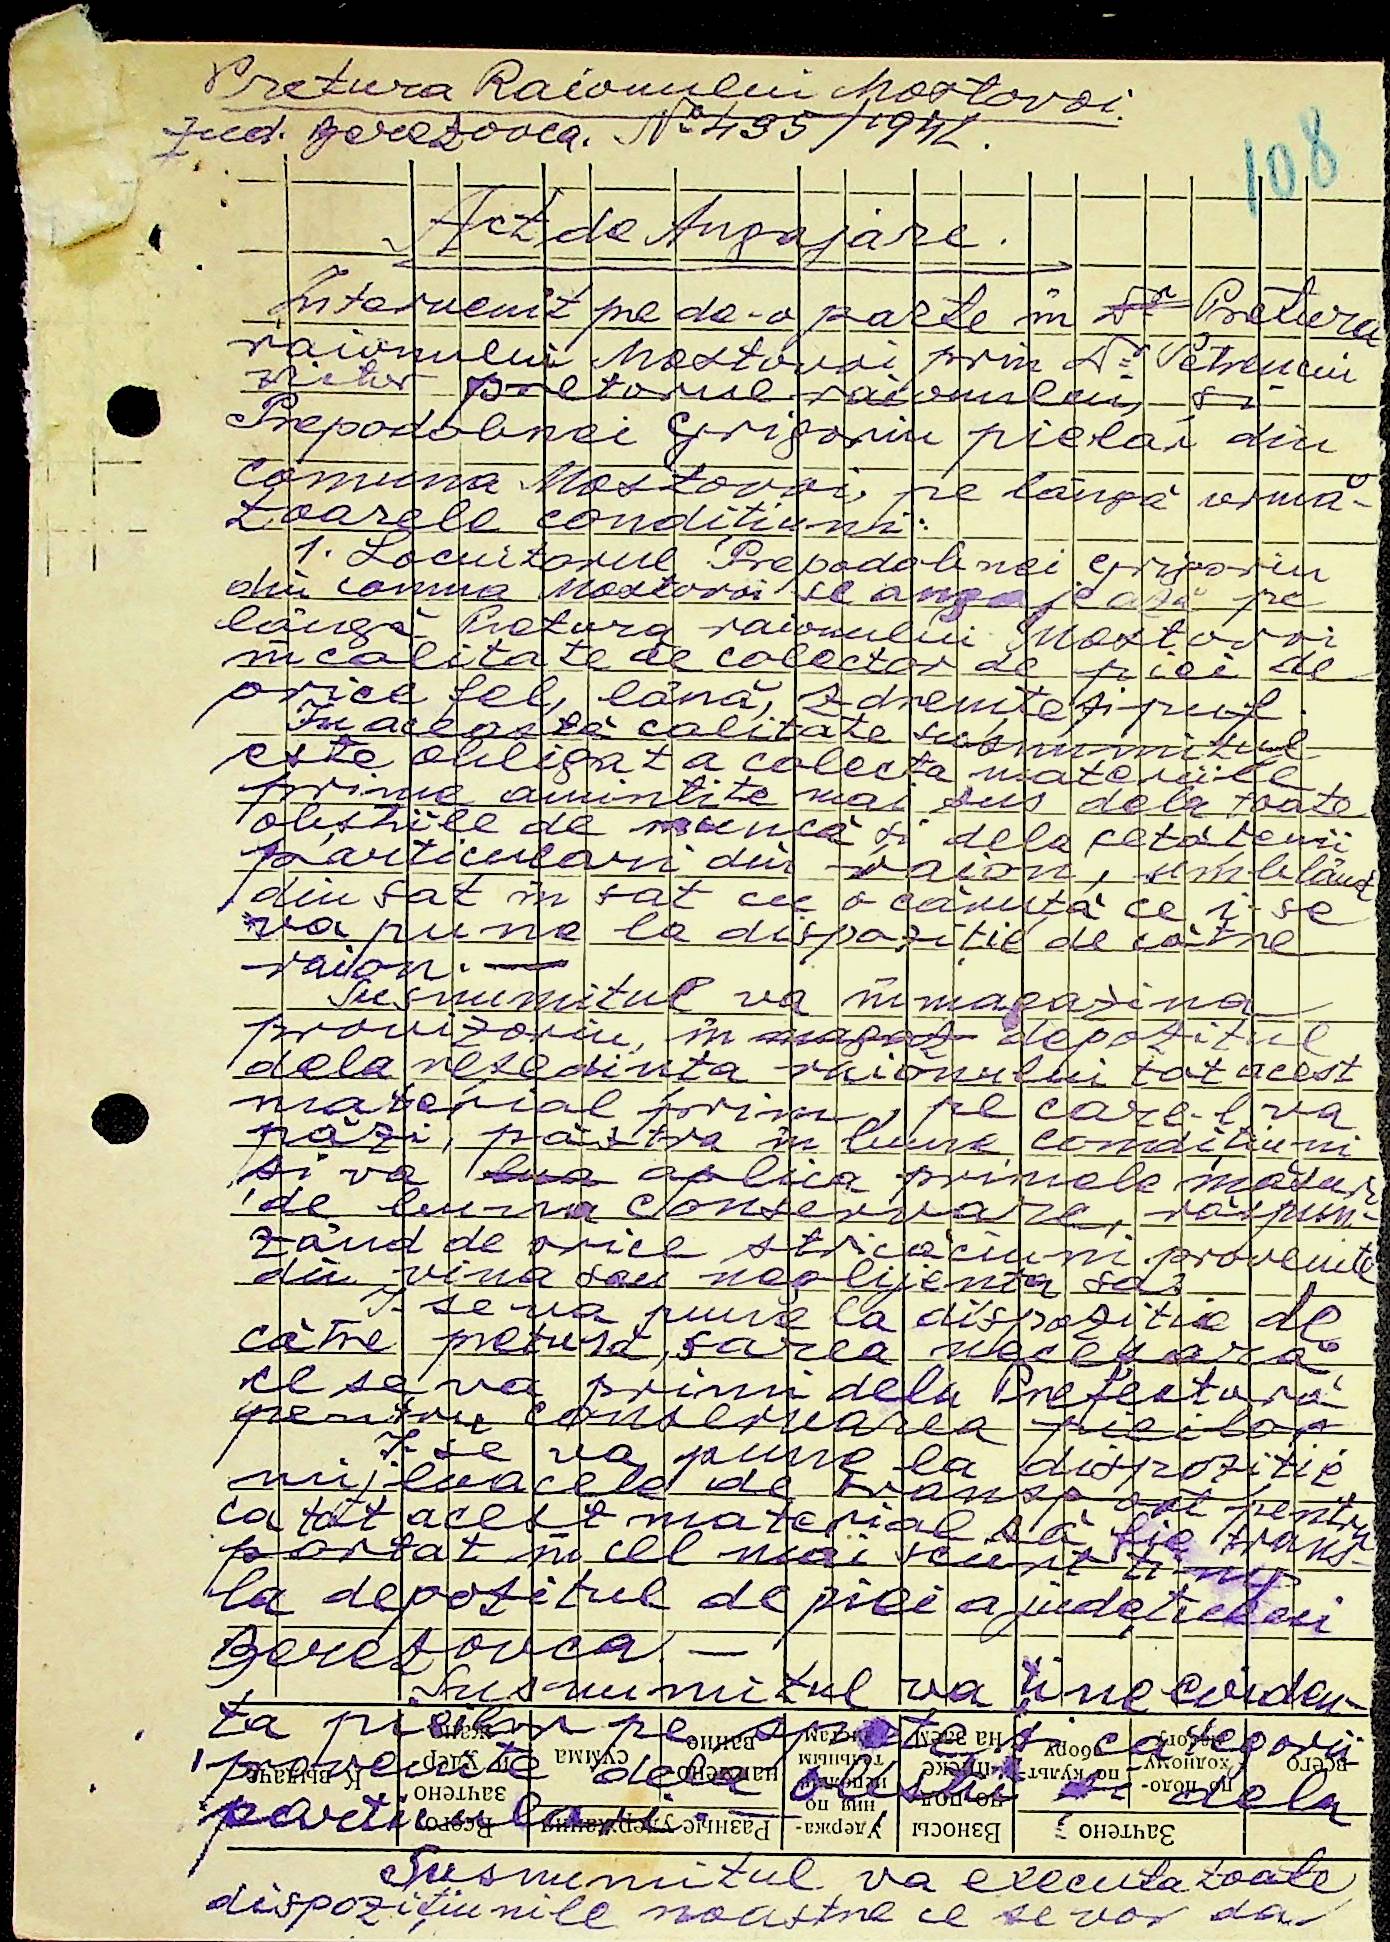 Pretura Raionului Mostovoi.
Jud. Berezovca. No 495/1942.
108
Act de Angajare.
Intervenit pe de-o parte în Pretura
raionului Mostovoi prin Dl Petrenciu
Victor pretorul raionului, și
Prepodobnei Grigoriu pielar din
comuna Mostovoi, pe lângă urmă-
toarele condițiuni:
1. Locuitorul Prepodobnei Grigoriu
din comuna Mostovoi se angajează pe
lângă Pretura raionului Mostovoi
în calitate de colector de piei de
orice fel, lână, zdrențe și puf.
În această calitate susnumitul
este obligat a colecta materiile
prime amintite mai sus dela toate
obștiile de muncă și dela cetățenii
particulari din raion, umblând
din sat în sat cu o căruță ce i-se
va pune la dispoziție de către
raion. —
Susnumitul va înmagazina
provizoriu, în depozitul
dela reședința raionului tot acest
material prim, pe care-l va
păzi, păstra în bune condițiuni
și va aplica primele măsuri
de buna conservare, răspun-
zând de orice stricăciuni provenite
din vina sau neglijența sa.
I-se va pune la dispoziție de
către pretură, sarea necesară
ce se va primi dela Prefectură
pentru conservarea pieilor
I-se va pune la dispoziție
mijloacele de transport pentru
ca tot acest material să fie trans-
portat în cel mai scurt timp
la depozitul de piei a județului
Berezovca. —
Susnumitul va ține eviden-
ța pieilor pe spețe și categorii
provenite dela obștii și dela
particulari. —
К выдаче
Всего зачтено и удержано
Разные удержания
сумма
наименование
Удержания по исполнительным листам
Взносы по подписке на заем
Зачтено
по культсбору
по подоходному налогу
всего
Susnumitul va executa toate
dispozițiunile noastre ce se vor da